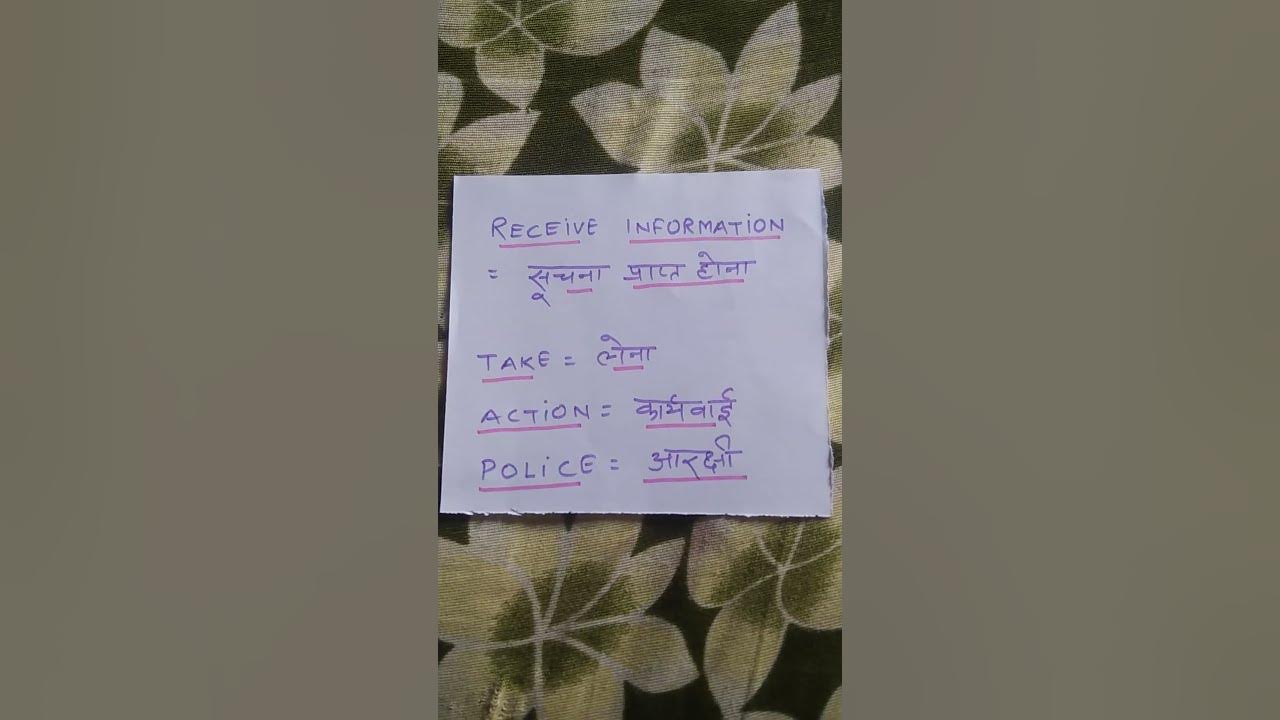 RECEiVE INFORMATiON
= सूचना प्राप्त होना
TAKE = लेना
ACTiON = कार्यवाई
POLiCE = आरक्षी